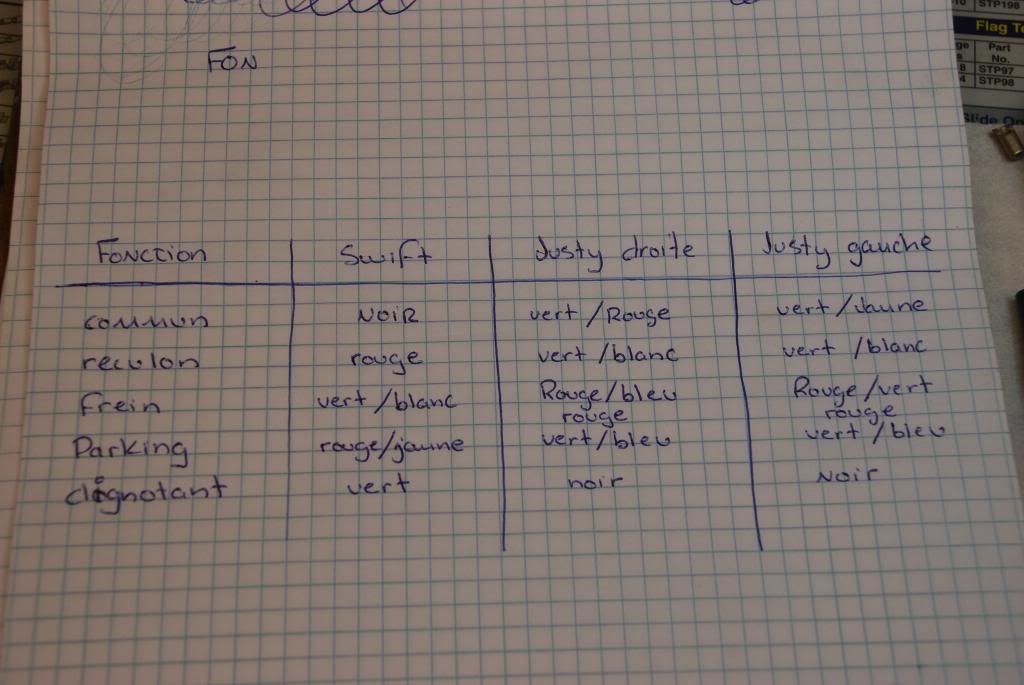 10 STP198
FON
Flag Te
ge Part
s No.
8 STP97
4 STP98
Slide On
Fonction Swift Justy droite Justy gauche
commun NOIR vert/Rouge vert/Jaune
reculon rouge vert/blanc vert/blanc
Frein vert/blanc Rouge/bleu Rouge/vert
rouge rouge
Parking rouge/jaune vert/bleu vert/bleu
clignotant vert noir Noir